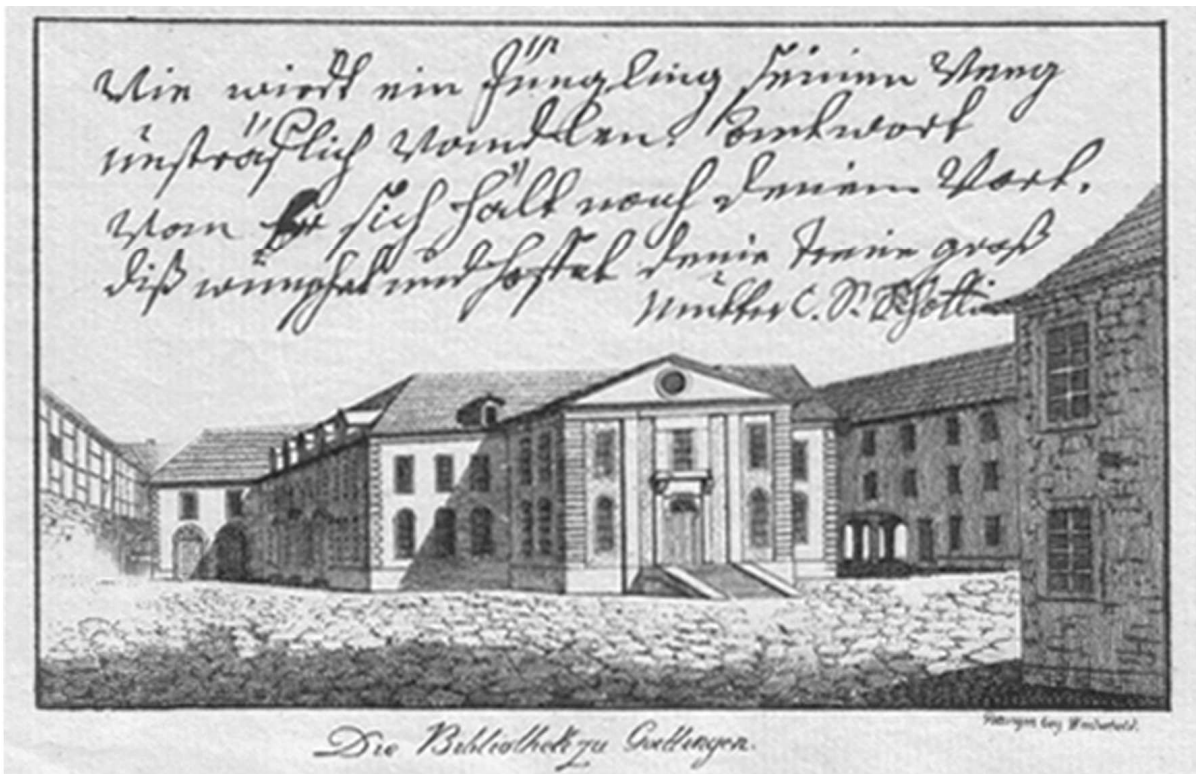 Wie wirdt ein Jüngling seinen Weeg
unsträflich Wandlen. Antwort
Wan Er sich hält nach deinem Wort.
diß wünschet und hoffet deine treue groß
Mutter C. S.
Die Bibliothek zu Goettingen.
bey Wiederhold.